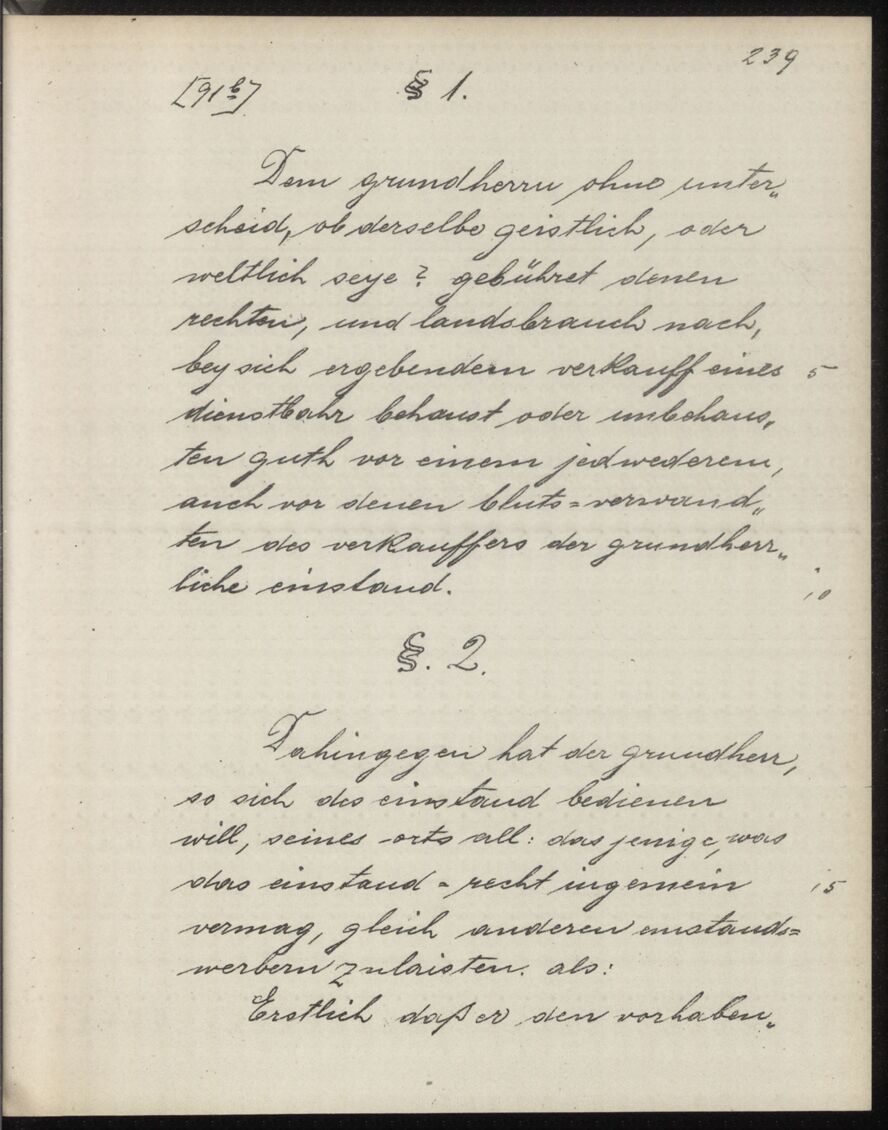 239
[91 b] § 1.
Dem grundherrn ohne unter„
scheid, ob derselbe geistlich, oder
weltlich seye? gebühret denen
rechten, und landsbrauch nach,
bey sich ergebendem verkauff eines 5
dienstbahr behaust oder unbehaus„
ten guth vor einem jedwederem,
auch vor denen bluts=verwand„
ten des verkauffers der grundherr„
liche einstand. 10
§. 2.
Dahingegen hat der grundherr,
so sich des einstand bedienen
will, seines orts all: das jenige, was
das einstand=recht ingemein 15
vermag, gleich anderen einstands=
werbern zulaisten. als:
Erstlich daß er den vorhaben„